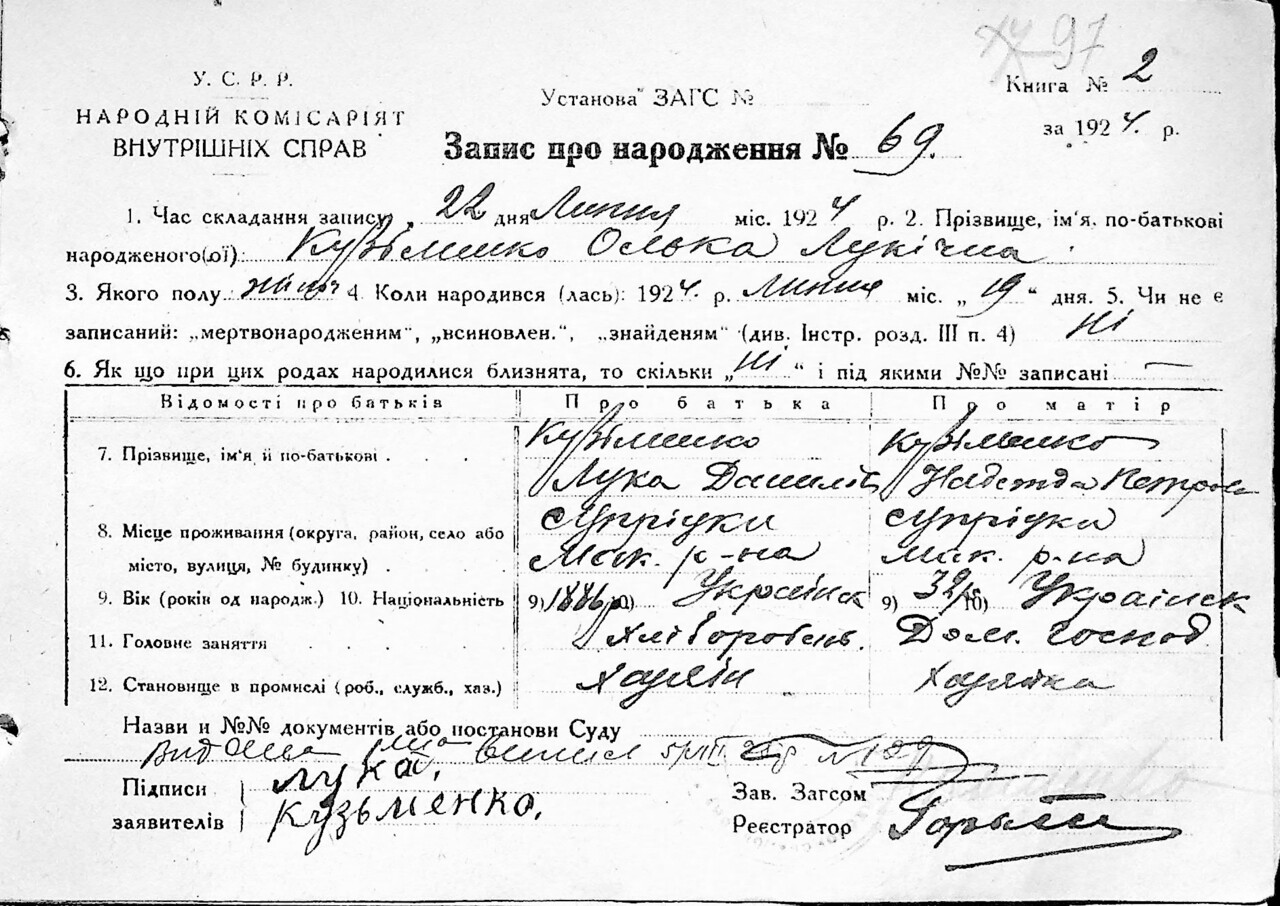 97
У. С. Р. Р.
НАРОДНІЙ КОМІСАРІЯТ
ВНУТРІШНІХ СПРАВ
Установа ЗАГС №
Книга № 2
за 1924. р.
Запис про народження № 69.
1. Час складання запису „ 22 дня Липня міс. 1924 р. 2. Прізвище, ім'я, по-батькові
народженого(ої) Кузьменко Олька Лукічна
3. Якого полу жіноч 4. Коли народився (лась): 1924. р. Липня міс. „ 19 " дня. 5. Чи не є
записаний: „мертвонародженим", „всиновлен.", „знайденям" (див. Інстр. розд. III п. 4) Ні
6. Як що при цих родах народилися близнята, то скільки „ ні " і під якими №№ записані —
Відомості про батьків Про батька Про матір
7. Прізвище, ім'я й по-батькові . . . . Кузьменко Лука Данилів Кузьменко Надежда Петров
8. Місце проживання (округа, район, село або
місто, вулиця, № будинку) . . . . р-на р-на
9. Вік (років од народж.) 10. Національність 9) 1886р. 10) Українск 9) 32р. 10) Українск
11. Головне заняття . . . . Хліборобень. Дом. господ
12. Становище в промислі (роб., служб., хаз.) Хазяін Хазяйка
Назви и №№ документів або постанови Суду
Видана № 129
Підписи
заявителів
Лука.
Кузьменко.
Зав. Загсом
Реєстратор